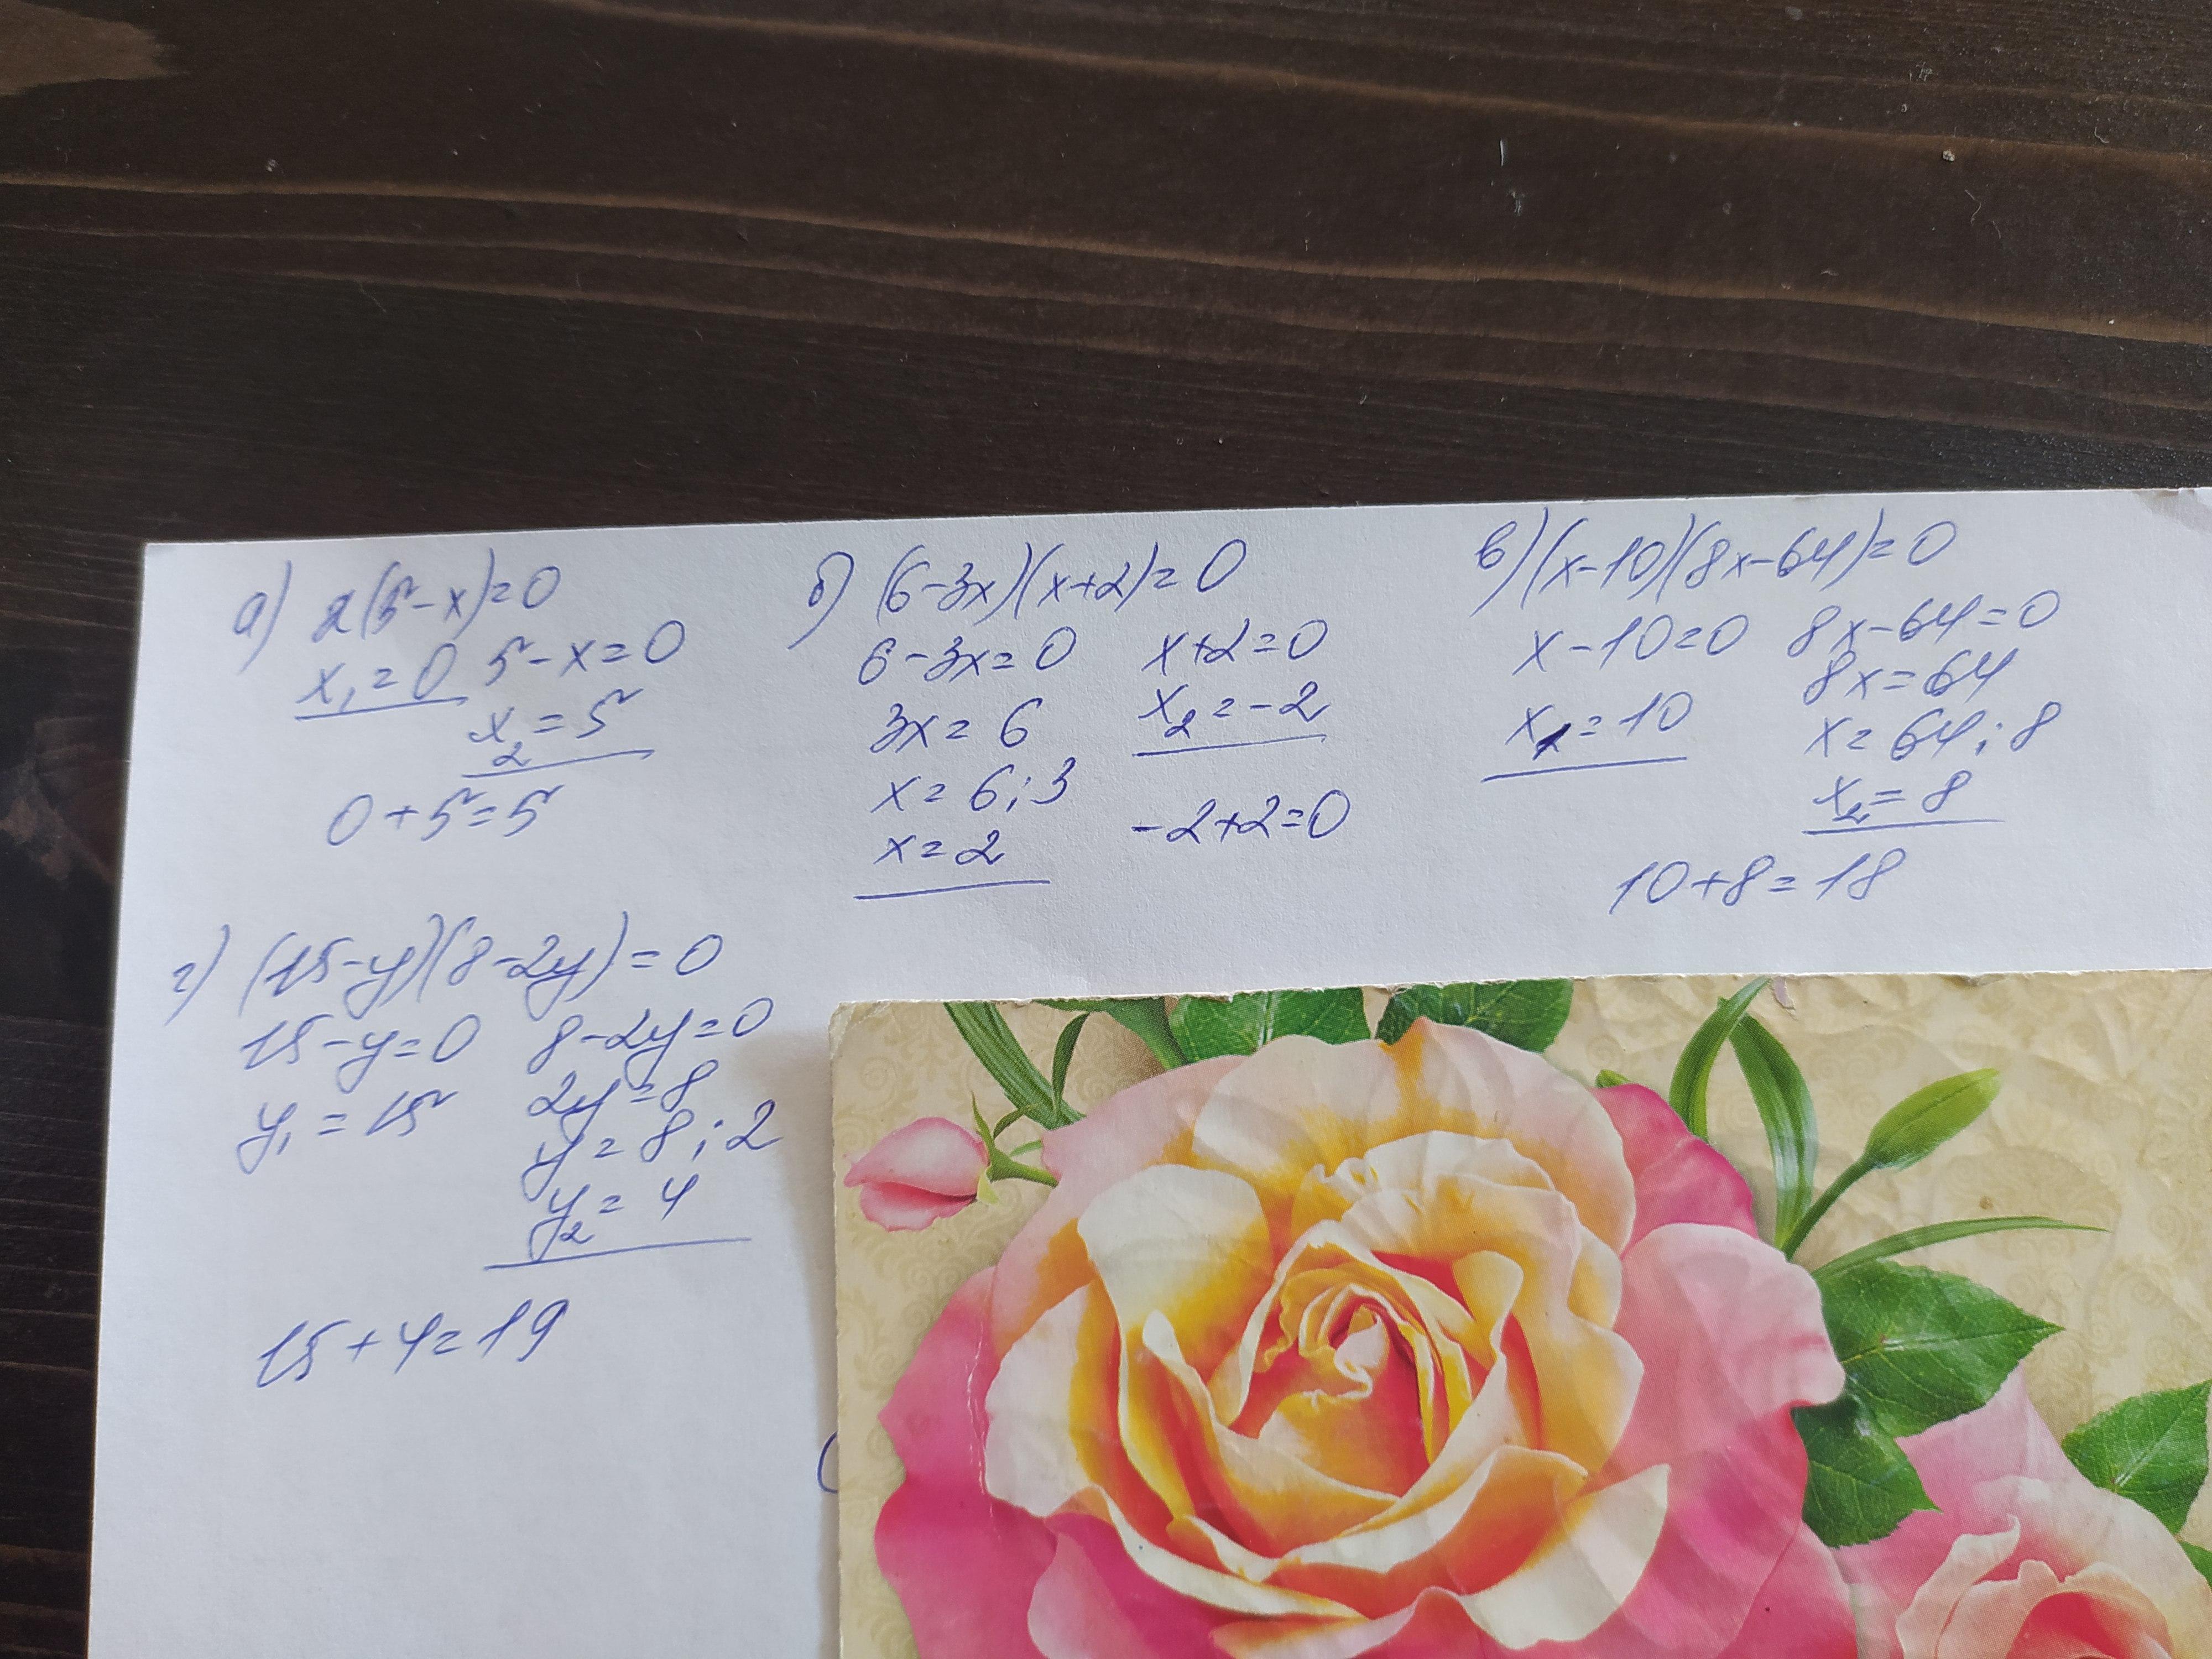 а) 2(5-x)=0
x₁=0 5-x=0
x₂=5
0+5=5
б) (6-3x)(x+2)=0
6-3x=0 x+2=0
3x=6 x₂=-2
x=6:3
x=2
-2+2=0
в) (x-10)(8x-64)=0
x-10=0 8x-64=0
8x=64
x₁=10 x=64:8
x₂=8
10+8=18
г) (15-y)(8-2y)=0
15-y=0 8-2y=0
y₁=15 2y=8
y=8:2
y₂=4
15+4=19